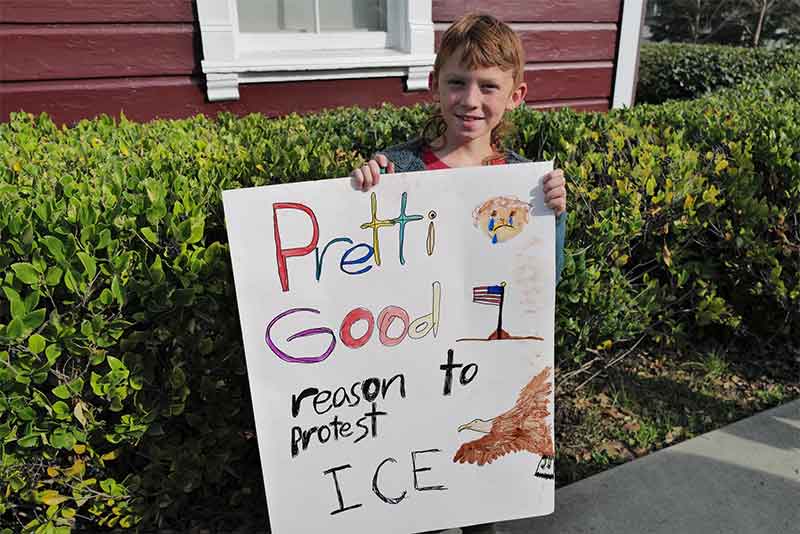 Pretti
Good
reason to
protest
ICE